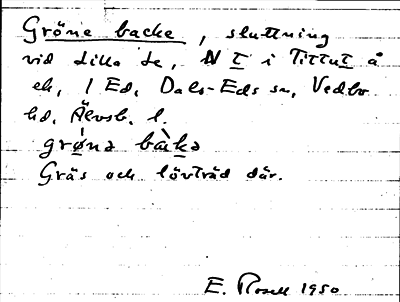 Gröne backe, sluttning
vid Lilla Le, N T i TITTUT å
ek, 1 Ed, Dals-Eds sn, Vedbo
hd. Älvsb. l.
grøna bàka
Gräs och lövträd där.
E. Rosell 1950